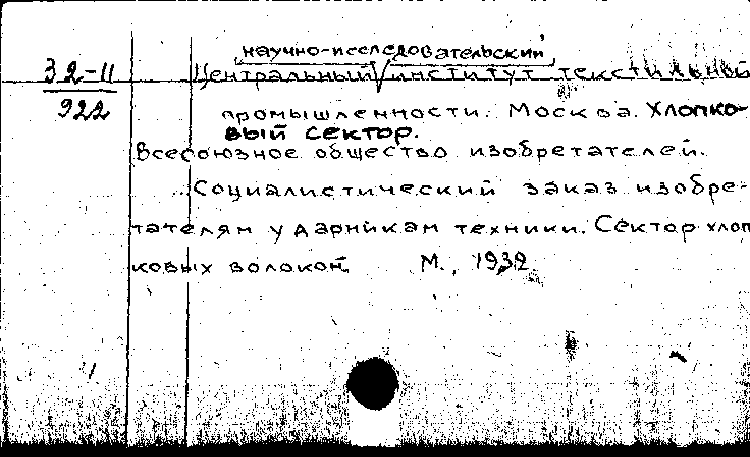 научно-исследовательский
32-11
922
Центральный институт текстильной
промышленности. Москва. Хлопко-
вый сектор.
Всесоюзное общество изобретателей.
Социалистический заказ изобре-
тателям ударникам техники. Сектор хлоп
ковых волокон. М., 1932